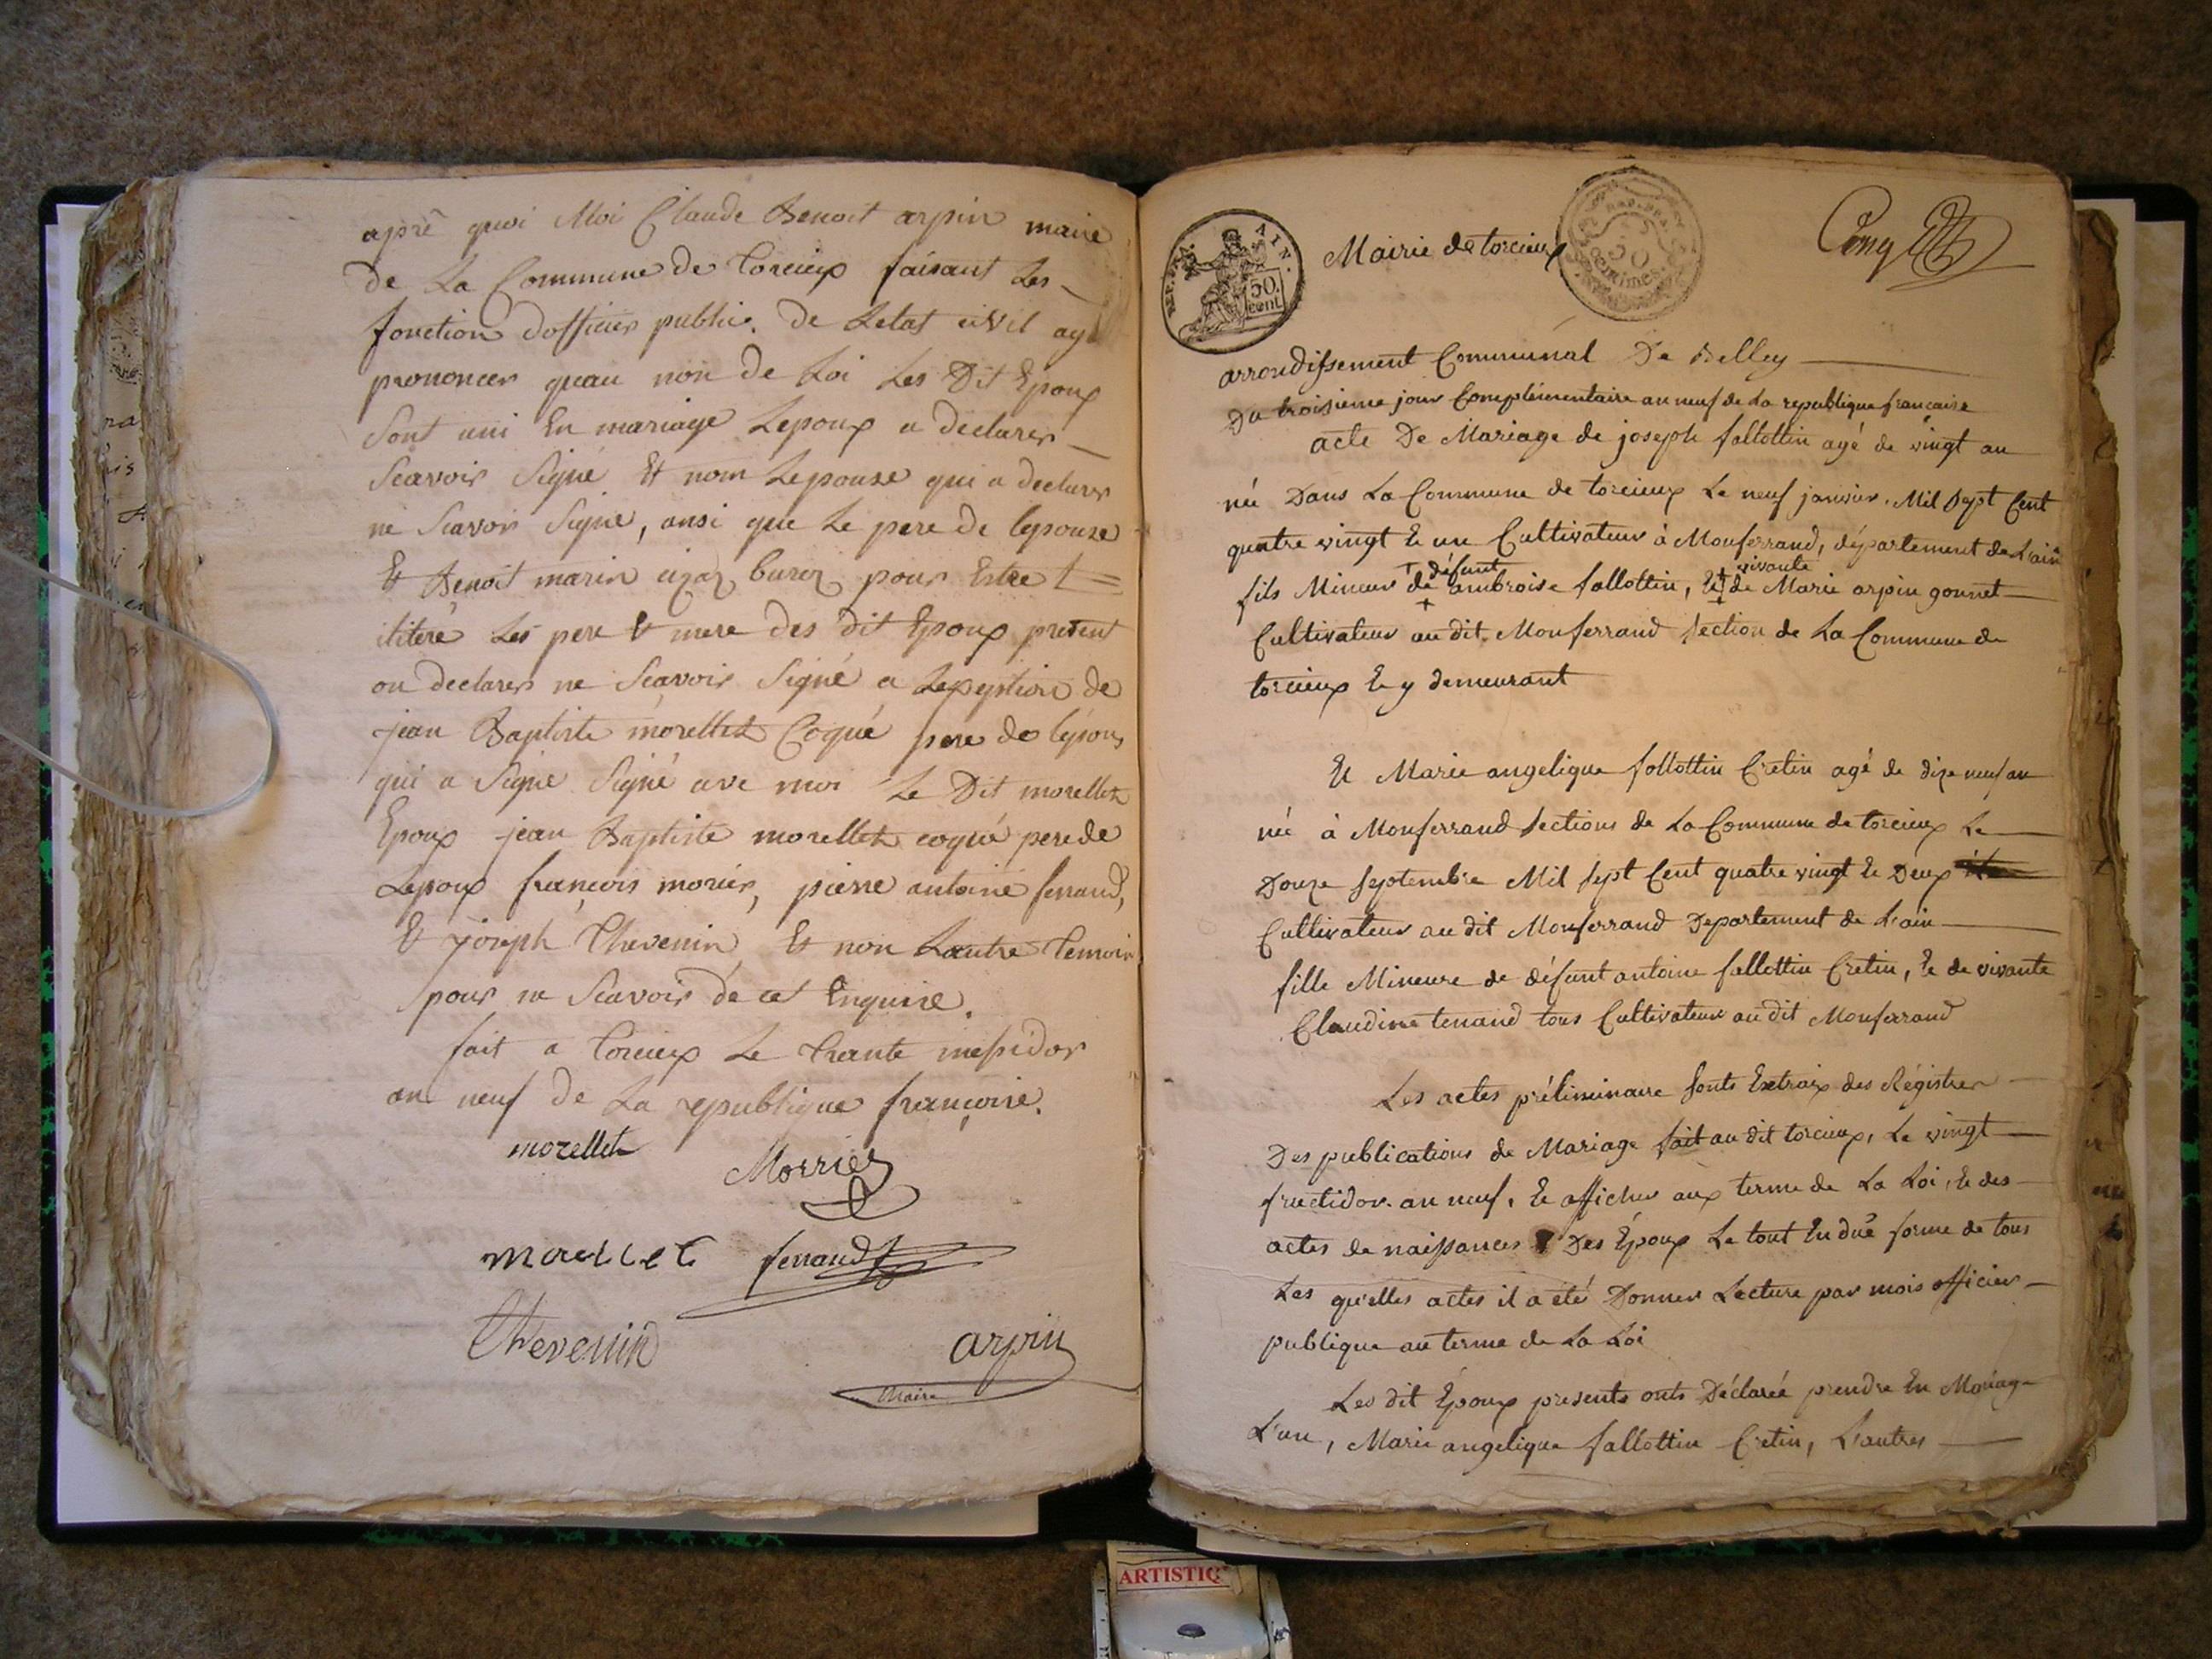 aprè quoi Moi Claude Benoit arpin maire
de La Commune de torcieux faisant Les
fonction dofficier public de Letat civil ay
prononcer quau non de Loi Les Dit Epoux
Sont uni En mariage Lepoux a declarer
Scavoir Signé Et nom Lepouse qui a declarer
ne Scavoir Signe, ansi que Le pere de lepouse
Et Benoit marin pour Estre
ititeré Les pere Et mere des dit Epoux present
on declarer ne Scavoir Signé a Lepeption de
jean Baptiste morellet Coqué pere de lépoux
qui a Signe Signé ave moi Le Dit morellet
Epoux jean Baptiste morellet coqué pere de
Lepoux françois morier, pierre antoine ferrand,
Et joseph Thevenin Et non Lautre temoin
pour ne Scavoir de cet Enquire.
fait a torcieux Le trante messidor
an neuf de La republique françoise.
morellet
Morrier
morellet ferrand
Thevenin arpin
Maire
REP. FRA. AIN.
50. cent
Mairie de torcieux
REP. FRA.
50
centimes
Cinq
arrondissement Communal De Belley
Du troisieme jour Complémentaire an neuf de La republique française
acte De Mariage de joseph fallottin agé de vingt an
née Dans La Commune de torcieux Le neuf janvier. Mil Sept Cent
quatre vingt Et un Cultivateur à Monferrand, département de L'ain
+ défunt + vivante
fils Mineur de ambroise fallottin, Et de Marie arpin gonnet
Cultivateur au dit Monferrand Section de La Commune de
torcieux Et y demeurant
Et Marie angelique follottin Cretin agé de dixe neuf an
née à Monferrand Sections de La Commune de torcieux Le
Douze Septembre Mil Sept Cent quatre vingt Et Deux
Cultivateur au dit Monferrand Departement de L'ain
fille Mineure de défunt antoine fallottin Cretin, Et de vivante
Claudine tenand tous Cultivateur au dit Monferrand
Les actes préliminaire Sonts Extraix des Régistrer
Des publications de Mariage fait au dit torcieux, Le vingt
fructidor. an neuf, Et afficher aux terme de La Loi, Et des
actes de naissances Des Époux Le tout En duë forme de tous
Les qu'elles actes il a été Donner Lecture par mois officier
publique au terme de La Loi
Les dit Époux presents onts Déclarée prendre En Mariage
L'un, Marie angelique fallottin Cretin, L'autres
ARTISTIQ